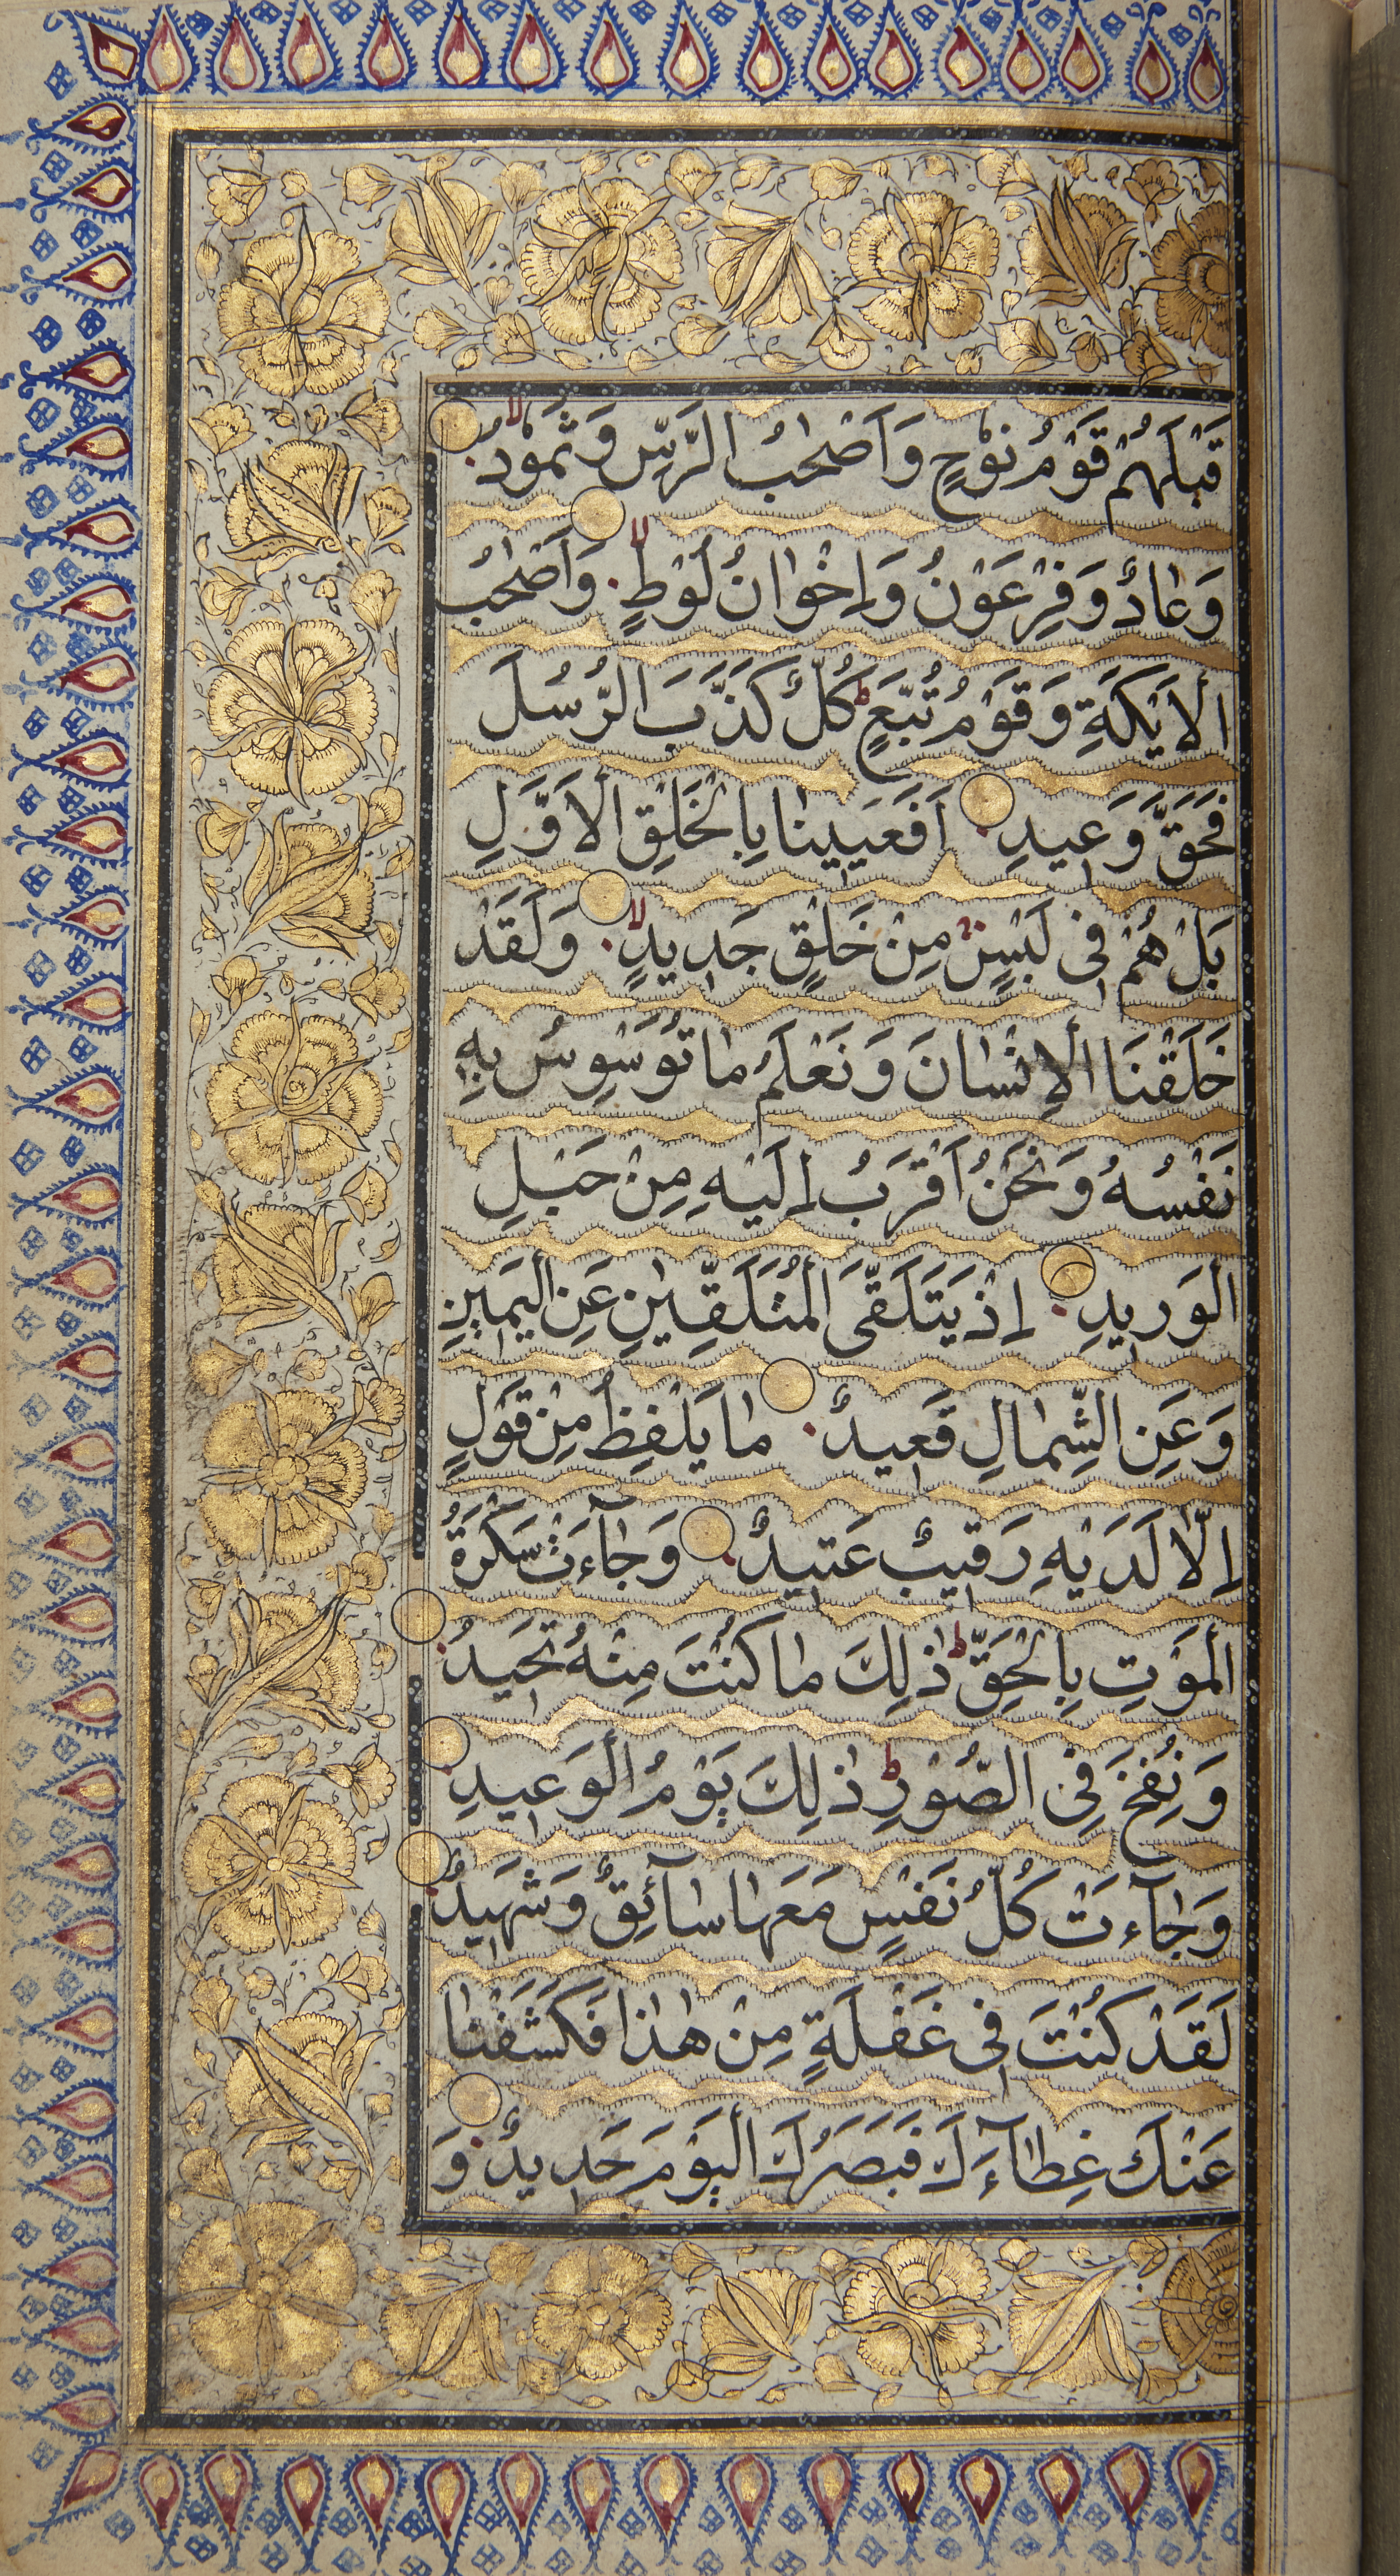 قَبْلَهُمْ قَوْمُ نُوْحٍ وَاَصْحٰبُ الرَّسِّ وَثَمُوْدُ لا
وَعٰادٌ وَفِرْعَوْنُ وَاِخْوٰانُ لُوْطٍ لا وَاَصْحٰبُ
الْاَيْكَةِ وَقَوْمُ تُبَّعٍ ط كُلٌّ كَذَّبَ الرُّسُلَ
فَحَقَّ وَعيدِ اَفَعَيينٰا بِالْخَلْقِ الْاَوَّلِ
بَلْ هُمْ فى لَبْسٍ مِنْ خَلْقٍ جَديدٍ لا وَلَقَدْ
خَلَقْنَا الْاِنْسٰانَ وَنَعْلَمُ مٰا تُوَسْوِسُ بِهِ
نَفْسُهُ وَنَحْنُ اَقْرَبُ اِلَيْهِ مِنْ حَبْلِ
الْوَريدِ اِذْ يَتَلَقَّى الْمُتَلَقِّيٰنِ عَنِ الْيَمينِ
وَعَنِ الشِّمٰالِ قَعيدٌ مٰا يَلْفِظُ مِنْ قَوْلٍ
اِلّٰا لَدَيْهِ رَقيبٌ عَتيدٌ وَجٰٓاءَتْ سَكْرَةُ
الْمَوْتِ بِالْحَقِّ ط ذٰلِكَ مٰا كُنْتَ مِنْهُ تَحيدُ
وَنُفِخَ فِى الصُّوْرِ ط ذٰلِكَ يَوْمُ الْوَعيدِ
وَجٰٓاءَتْ كُلُّ نَفْسٍ مَعَهٰا سٰٓائِقٌ وَشَهيدٌ
لَقَدْ كُنْتَ فى غَفْلَةٍ مِنْ هٰذٰا فَكَشَفْنٰا
عَنْكَ غِطٰٓاءَكَ فَبَصَرُكَ الْيَوْمَ حَديدٌ وَ